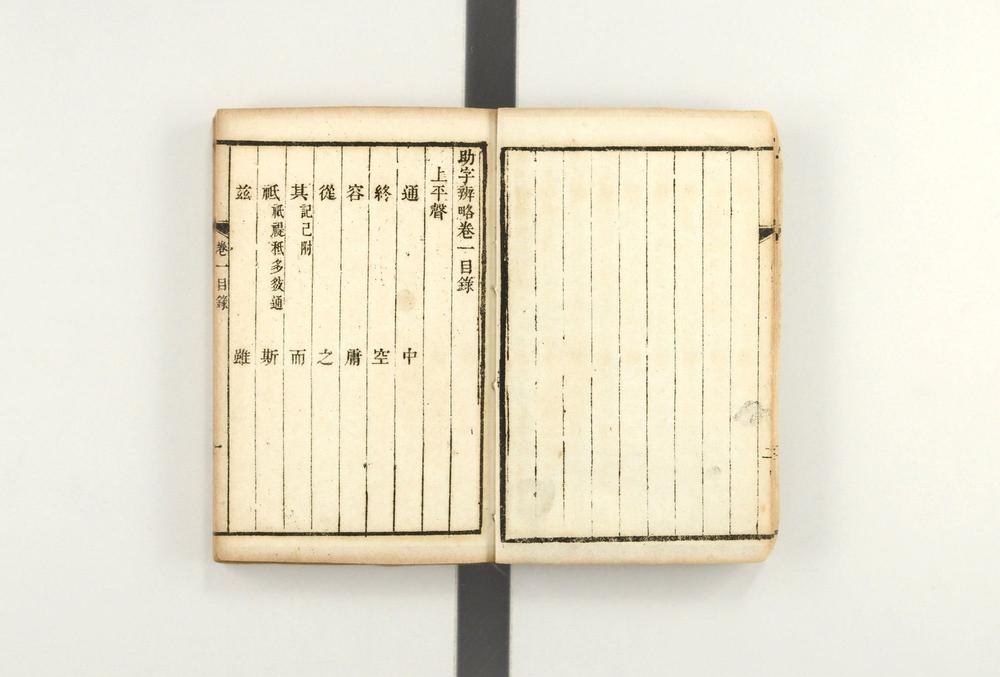 助字辨略卷一目錄
上平聲
通 中
終 空
容 庸
從 之
其 記己附 而
祗 祇禔秖多敍通 斯
茲 雖
卷一目錄
一
二